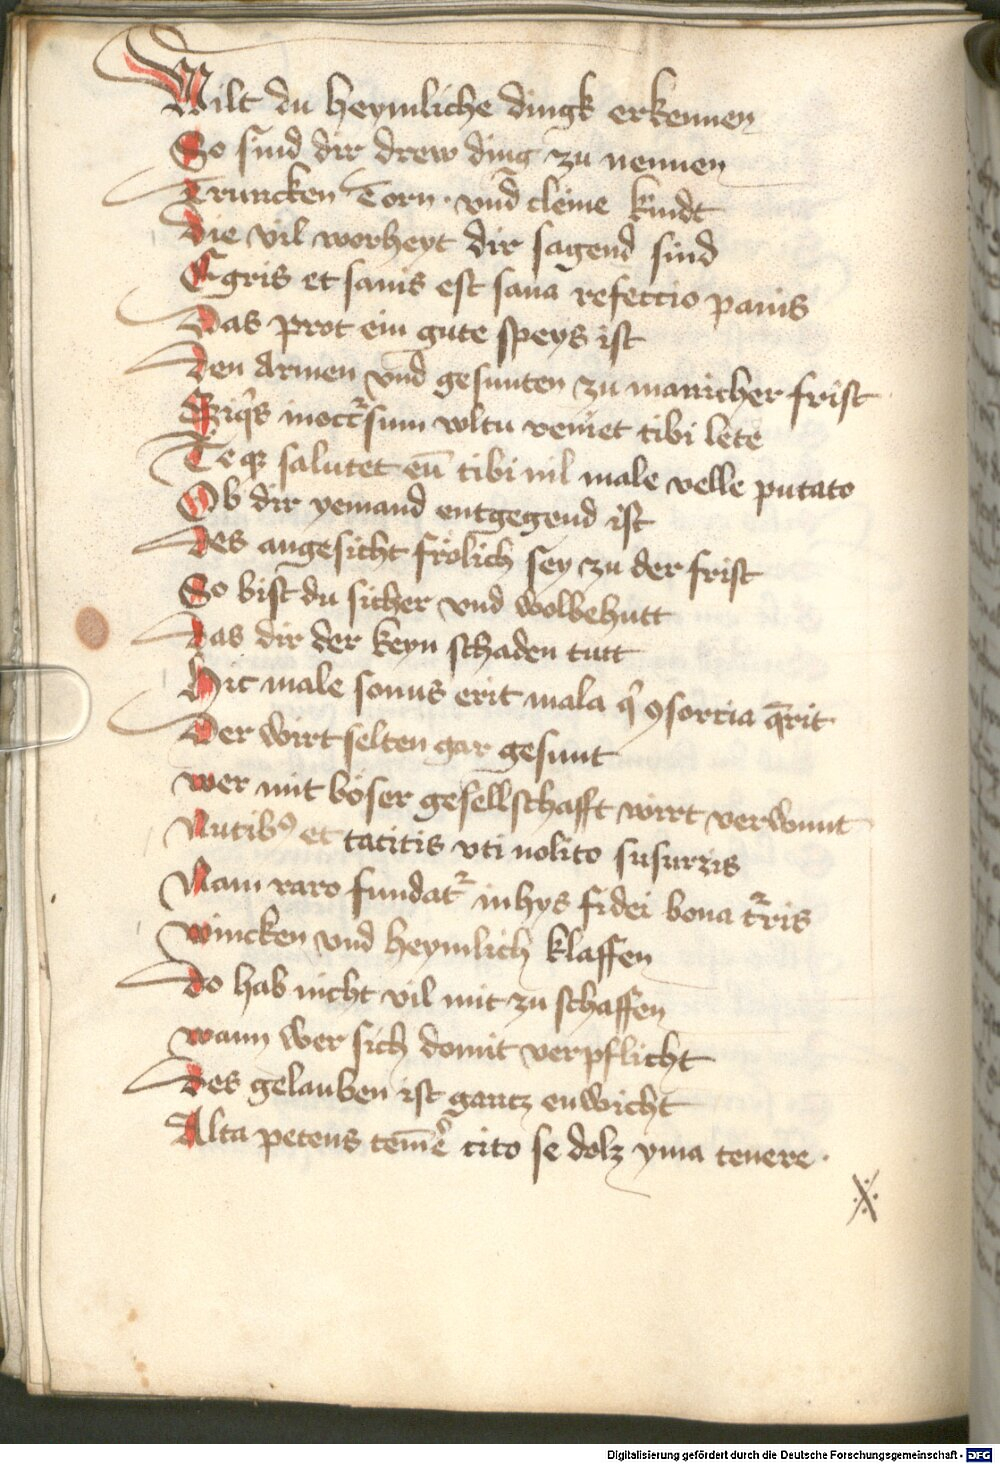 Wilt du heymliche dingk erkennen
So sind dir drew ding zu nennen
Truncken Torn · vnd cleine kindt
Die vil worheyt dir sagend sind
Egris et sanis est sana refectio panis
Das prot ein gute speys ist
Den Armen vnd gesunten zu mancher frist
Siqͥs inoccᷣsum vultu veniet tibi lete
Teqꝫ salutet eū tibi nil male velle putato
Ob dir yemand entgegend ist
Des angesicht frölich sey zu der frist
So bist du sicher vnd wolbehutt
Das dir der keyn schaden tutt
Hic male sonus erit mala qͥ ꝯsortia q̄rit
Der wirt selten gar gesunt
wer mit böser gesellschafft wirt verwunt
Nutibꝰ et tacitis vti nolito susurris
Nam raro fundatᷣ in hys fidei bona tᷣris
wincken vnd heymlich klaffen
Do hab nicht vil mit zu schaffen
wann wer sich domit verpflicht
Des gelauben ist gantz enwicht
Alta petens tem̄e cito se dolꝫ yma tenere ·
Digitalisierung gefördert durch die Deutsche Forschungsgemeinschaft - DFG